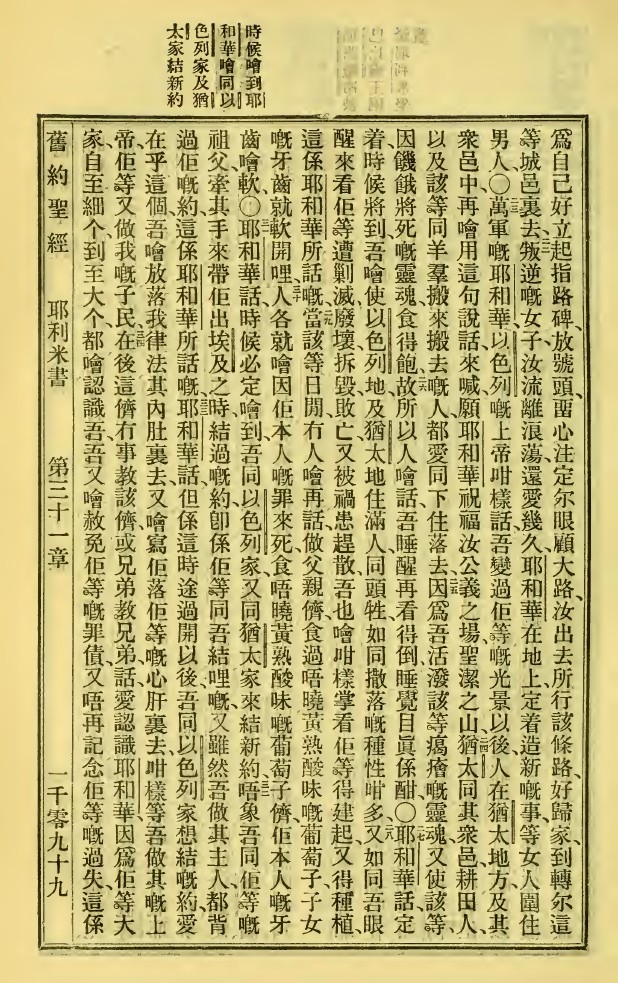 時候噲到耶
和華噲同以
色列家及猶
太家結新約
爲自己好立起指路碑、放號頭畱心注定尔眼顧大路、汝出去所行該條路、好歸家到轉尔這
等城邑裏去、叛逆嘅女子、汝流離浪蕩、還愛幾久、耶和華在地上定着造新嘅事、等女人圍住
男人、〇萬軍嘅耶和華以色列嘅上帝咁樣話、吾變過佢等嘅光景以後、人在猶太地方及其
衆邑中、再噲用這句說話來喊、願耶和華祝福汝、公義之場、聖潔之山、猶太同其衆邑、耕田人、
以及該等同羊羣搬來搬去嘅人、都愛同下住落去、因爲吾活潑該等瘍瘡嘅靈魂、又使該等、
因饑餓將死嘅靈魂食得飽、故所以人噲話、吾睡醒再看得倒、睡覺目眞係酣、〇耶和華話、定
着時候將到、吾噲使以色列地、及猶太地住滿人、同頭牲、如同撒落嘅種性咁多、又如同吾眼
醒來看佢等遭剿滅、廢壞、拆毀、敗亡、又被禍患趕散、吾也噲咁樣掌看佢等得建起、又得種植、
這係耶和華所話嘅、當該等日開冇人噲再話、做父親儕食過唔曉黃熟酸味嘅葡萄子、子女
嘅牙齒就軟、開哩人各就噲因佢本人嘅罪來死、食唔曉黃熟酸味嘅葡萄子儕、佢本人嘅牙
齒噲軟、〇耶和華話、時候必定噲到、吾同以色列家又同猶太家來結新約、唔象吾同佢等嘅
祖父、牽其手來帶佢出埃及之時結過嘅約、卽係佢等同吾結哩嘅、又雖然吾做其主人、都背
過佢嘅約、這係耶和華所話嘅、耶和華話、但係這時途過開以後、吾同以色列家想結嘅約、愛
在乎這個、吾噲放落我律法其內肚裏去、又噲寫佢落佢等嘅心肝裏去、咁樣等吾做其嘅上
帝、佢等又做我嘅子民、在後這儕冇事教該儕、或兄弟教兄弟話、愛認識耶和華、因爲佢等大
家自至細个到至大个、都噲認識吾、吾又噲赦免佢等嘅罪債、又唔再記念佢等嘅過失、這係
舊約聖經 耶利米書 第三十一章 一千零九十九